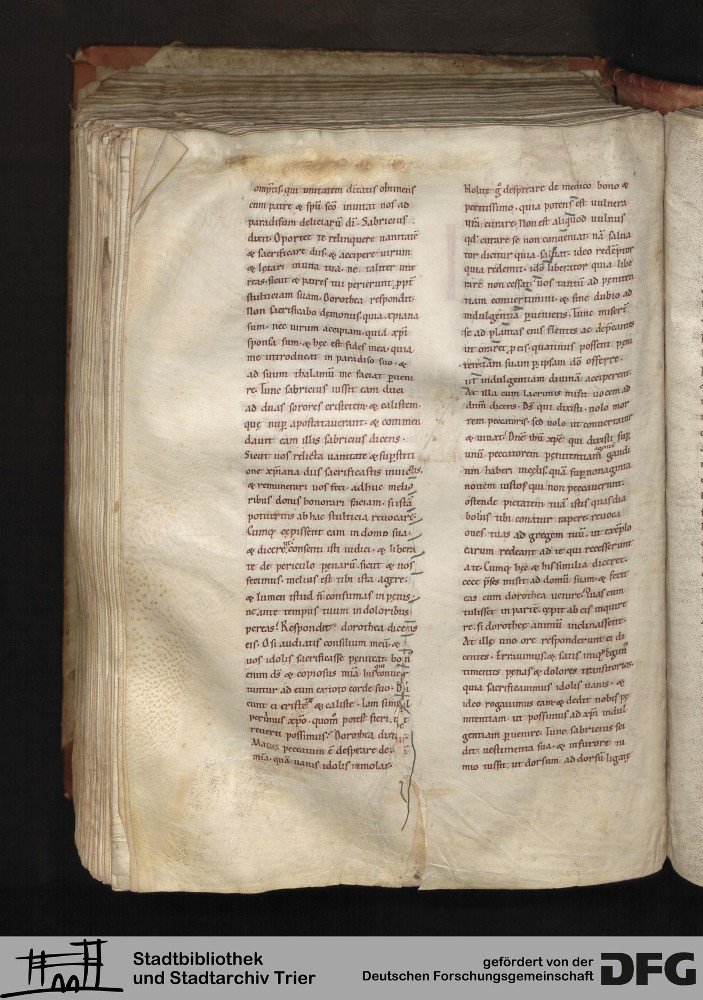 omp̅tis. qui unitatem diuitatis obtinens
cum patre & sp̅u sc̅o inuitat nos ad
paradisum deliciarū dī. Sabricius
dixit. Oportet te relinquere uanitatē
& sacrificare diis. & accipere uirum
& letari in uita tua. ne taliter inte
reas. sicut & patres tui perierunt. ppt̄
stulticiam suam. Dorothea respondit.
Non sacrificabo demoniis. quia xp̅iana
sum. nec uirum accipiam. quia xp̅i
sponsa sum. & hec est fides mea. quia
me introducat in paradiso suo. &
ad suum thalamū me faciat pueni
re. Tunc sabricius iussit eam duci
ad duas sorores cristetem & calistem.
que nup̄ apostatauerant. & commen
dauit eam illis sabricius dicens.
Sicut uos relicta uanitate & supstiti
one xp̅iana diis sacrificastis inuictis.
& remunerari uos feci. adhuc melio
ribus donis honorari faciam. si istā
potueritis ab hac stulticia reuocare.
Cumq; cepissent eam in domo sua.
& dicerent. consenti isti iudici. & libera
te de periculo penarū. sicut & nos
fecimus. melius est tibi ista agere.
& lumen istud n̄ consumas in penis.
ne ante tempus tuum in doloribus
pereas. Respondit dorothea dicens
eis. O si audiatis consilium meū. &
uos idolis sacrificasse peniteat. bon
enim ds̄ & copiosus mia his qui conuer
tuntur ad eum ex toto corde suo. Dix
erunt ei criste & caliste. Iam simul
perimus xp̅o. quom̄ potest fieri. ut
reuerti possimus? Dorothea dixit.
Maius peccatum ē desperare de dei
mīa. quā uanis idolis immolare.
Nolite g̊ desperare de medico bono &
peritissimo. quia potens est uulnera
ur̄a curare. Non est aliquod uulnus
qd̄ curare se non conueniat. nā salua
tor dicitur quia saluat. ideo redēptor
quia redemit. ido̅ liberator quia libe
rare non cessat. uos tantū ad peniten
tiam conuertimini. & sine dubio ad
indulgentiā puenietis. Tunc miserī
se ad plantas eius flentes ac dep̄cantes
ut oraret p eis. quatinus possent peni
tentiam suam p ipsam dō offerre.
ut indulgentiam diuinā acciperent.
At illa cum lacrimis misit uocem ad
dnm̄ dicens. Ds̄ qui dixisti. nolo mor
tem peccatoris. sed uolo ut conuertatur
& uiuat. Dn̄e ihū xp̅e. qui dixisti. sup
unū peccatorem penitentiam agentem gaudi
um haberi in celis. quā sup nonaginta
nouem iustos qui non peccauerunt.
ostende pietatem tuā. istas quas dia
bolus tibi conatur rapere. reuoca
oues tuas ad gregem tuū. ut exēplo
earum redeant ad te qui recesserunt
a te. Cumq; hec & his similia diceret.
ecce p̄ses misit ad domū suam. & fecit
eas cum dorothea uenire. Quas cum
tulisset in partē. cepit ab eis inquire
re. si dorotheę animū inclinassent.
At ille uno ore responderunt ei di
centes. Errauimus. & satis iniq; egim̄
timentes penas & dolores transitorios.
quia sacrificauimus idolis uanis. &
ideo rogauimus eam. & dedit nobis pe
nitentiam. ut possimus ad xp̅i indul
gentiam puenire. Tunc sabricius sci
dit uestimenta sua. & in furore ni
mio iussit. ut dorsum ad dorsū ligatę
Stadtbibliothek
und Stadtarchiv Trier
gefördert von der
Deutschen Forschungsgemeinschaft
DFG